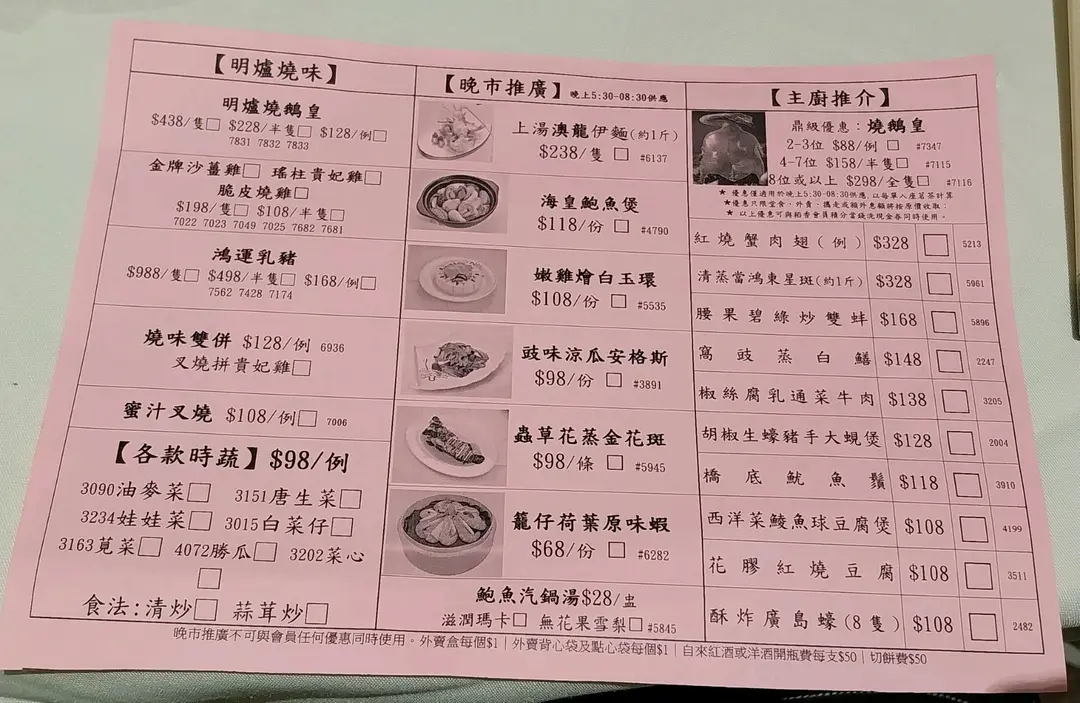 【明爐燒味】
明爐燒鵝皇
$438/隻□ $228/半隻□ $128/例□
7831 7832 7833
金牌沙薑雞□ 瑤柱貴妃雞□
脆皮燒雞□
$198/隻□ $108/半隻□
7022 7023 7049 7025 7682 7681
鴻運乳豬
$988/隻□ $498/半隻□ $168/例□
7562 7428 7174
燒味雙併 $128/例 6936
叉燒拼貴妃雞□
蜜汁叉燒 $108/例□ 7006
【各款時蔬】$98/例
3090油麥菜□ 3151唐生菜□
3234娃娃菜□ 3015白菜仔□
3163莧菜□ 4072勝瓜□ 3202菜心
□
食法:清炒□ 蒜茸炒□
【晚市推廣】晚上5:30-08:30供應
上湯澳龍伊麵(約1斤)
$238/隻 □ #6137
海皇鮑魚煲
$118/份 □ #4790
嫩雞燴白玉環
$108/份 □ #5535
豉味涼瓜安格斯
$98/份 □ #3891
蟲草花蒸金花斑
$98/條 □ #5945
籠仔荷葉原味蝦
$68/份 □ #6282
鮑魚汽鍋湯$28/盅
滋潤瑪卡□ 無花果雪梨□#5845
【主廚推介】
鼎級優惠：燒鵝皇
2-3位 $88/例 □ #7347
4-7位 $158/半隻□ #7115
8位或以上 $298/全隻□ #7116
★ 優惠僅適用於晚上5:30-08:30供應, 以每單入座茗茶計算
★優惠只限堂食，外賣、攜走或額外惠顧將按原價收取：
★ 以上優惠可與稻香會員積分當錢洗現金券同時使用。
紅燒蟹肉翅(例) $328 □ 5213
清蒸當鴻東星斑(約1斤) $328 □ 5961
腰果碧綠炒雙蚌 $168 □ 5896
窩豉蒸白鱔 $148 □ 2247
椒絲腐乳通菜牛肉 $138 □ 3205
胡椒生蠔豬手大蜆煲 $128 □ 2004
橋底魷魚鬚 $118 □ 3910
西洋菜鯪魚球豆腐煲 $108 □ 4199
花膠紅燒豆腐 $108 □ 3511
酥炸廣島蠔(8隻) $108 □ 2482
晚市推廣不可與會員任何優惠同時使用。外賣盒每個$1｜外賣背心袋及點心袋每個$1｜自來紅酒或洋酒開瓶費每支$50｜切餅費$50